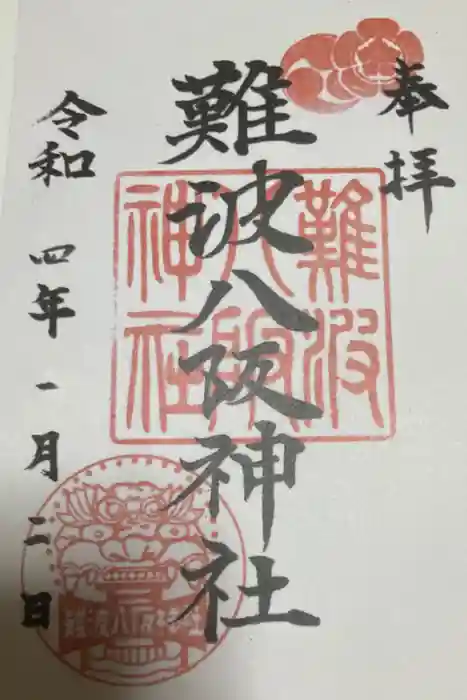 奉拝
難波八阪神社
難波八阪神社
令和 四年 一月 二日
難波八阪神社